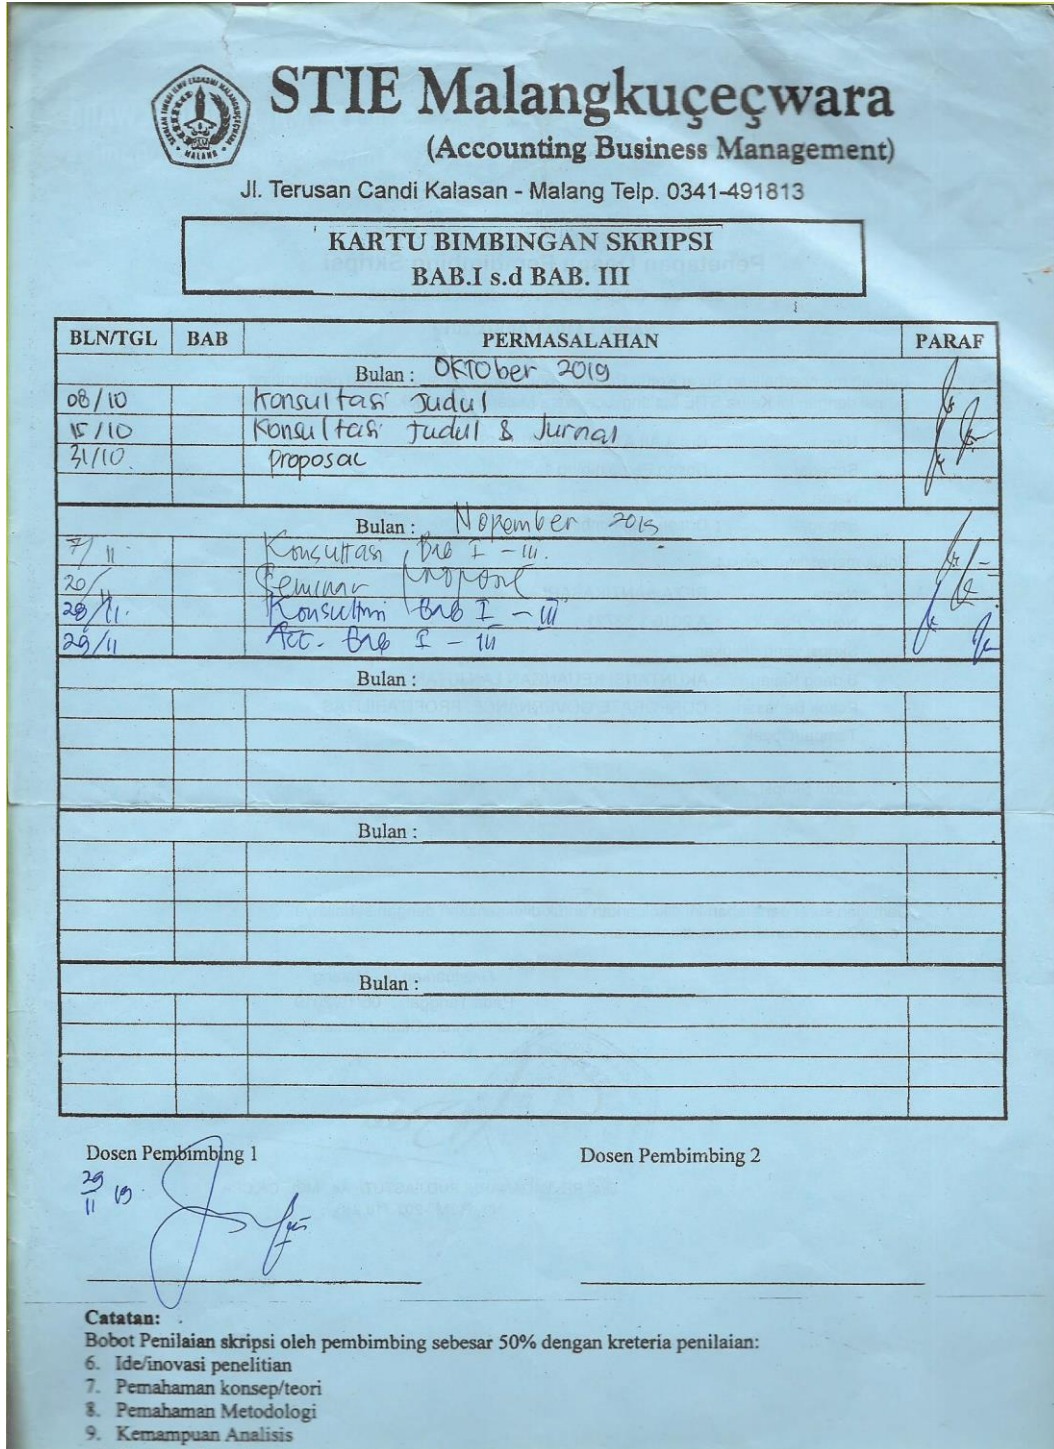 STIE Malangkuçeçwara
(Accounting Business Management)
Jl. Terusan Candi Kalasan - Malang Telp. 0341-491813
KARTU BIMBINGAN SKRIPSI
BAB.I s.d BAB. III
BLN/TGL BAB PERMASALAHAN PARAF
Bulan : OKTOber 2019
08/10 Konsultasi Judul
15/10 Konsultasi Judul & Jurnal
31/10. Proposal
Bulan : Nopember 2019
7/11. Konsultasi Bab I - III.
20/11 Seminar Proposal
28/11. Konsultasi Bab I - III
29/11 Acc. Bab I - III
Bulan :
Bulan :
Bulan :
Dosen Pembimbing 1 Dosen Pembimbing 2
29/11 19.
Catatan:
Bobot Penilaian skripsi oleh pembimbing sebesar 50% dengan kreteria penilaian:
6. Ide/inovasi penelitian
7. Pemahaman konsep/teori
8. Pemahaman Metodologi
9. Kemampuan Analisis